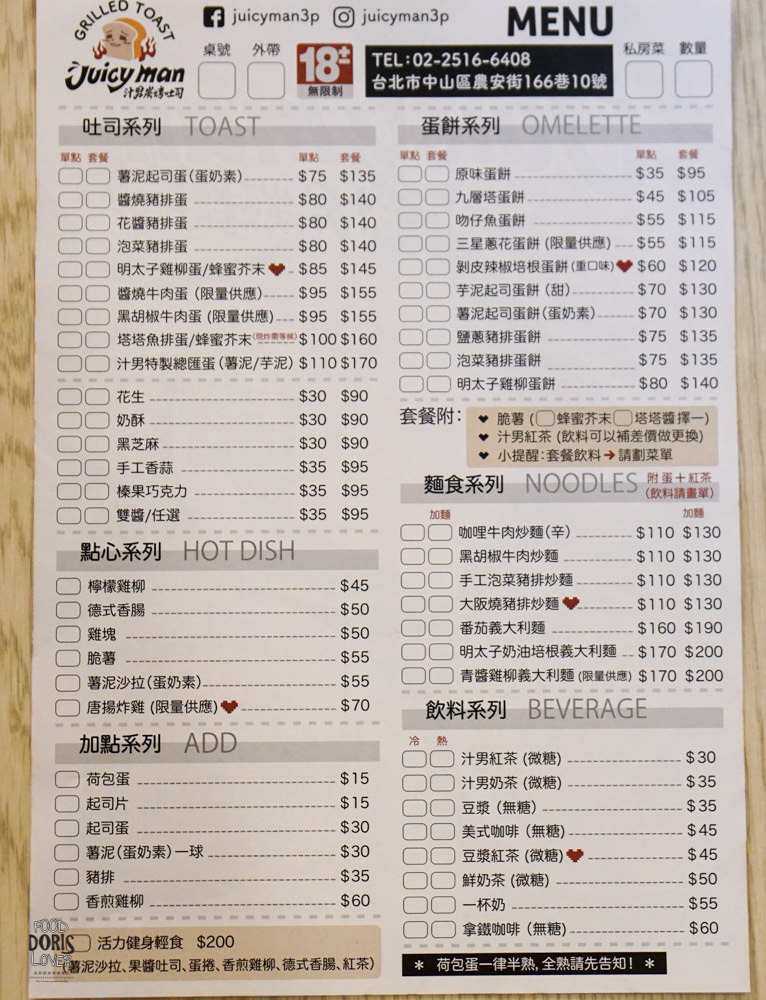 GRILLED TOAST
Juicy man
汁男炭烤吐司
juicyman3p juicyman3p
MENU
桌號 外帶
18± 無限制
TEL:02-2516-6408
台北市中山區農安街166巷10號
私房菜 數量
吐司系列 TOAST
單點 套餐 單點 套餐
薯泥起司蛋(蛋奶素) $75 $135
醬燒豬排蛋 $80 $140
花醬豬排蛋 $80 $140
泡菜豬排蛋 $80 $140
明太子雞柳蛋/蜂蜜芥末 $85 $145
醬燒牛肉蛋 (限量供應) $95 $155
黑胡椒牛肉蛋 (限量供應) $95 $155
塔塔魚排蛋/蜂蜜芥末(現炸需等候) $100 $160
汁男特製總匯蛋 (薯泥/芋泥) $110 $170
花生 $30 $90
奶酥 $30 $90
黑芝麻 $30 $90
手工香蒜 $35 $95
榛果巧克力 $35 $95
雙醬/任選 $35 $95
點心系列 HOT DISH
檸檬雞柳 $45
德式香腸 $50
雞塊 $50
脆薯 $55
薯泥沙拉(蛋奶素) $55
唐揚炸雞 (限量供應) $70
加點系列 ADD
荷包蛋 $15
起司片 $15
起司蛋 $30
薯泥(蛋奶素)一球 $30
豬排 $35
香煎雞柳 $60
活力健身輕食 $200
(薯泥沙拉、果醬吐司、蛋捲、香煎雞柳、德式香腸、紅茶)
蛋餅系列 OMELETTE
單點 套餐 單點 套餐
原味蛋餅 $35 $95
九層塔蛋餅 $45 $105
吻仔魚蛋餅 $55 $115
三星蔥花蛋餅 (限量供應) $55 $115
剝皮辣椒培根蛋餅(重口味) $60 $120
芋泥起司蛋餅 (甜) $70 $130
薯泥起司蛋餅(蛋奶素) $70 $130
鹽蔥豬排蛋餅 $75 $135
泡菜豬排蛋餅 $75 $135
明太子雞柳蛋餅 $80 $140
套餐附:
脆薯 (蜂蜜芥末 塔塔醬擇一)
汁男紅茶 (飲料可以補差價做更換)
小提醒:套餐飲料➔請劃菜單
麵食系列 NOODLES 附 蛋+紅茶
(飲料請畫單)
加麵 加麵
咖哩牛肉炒麵(辛) $110 $130
黑胡椒牛肉炒麵 $110 $130
手工泡菜豬排炒麵 $110 $130
大阪燒豬排炒麵 $110 $130
番茄義大利麵 $160 $190
明太子奶油培根義大利麵 $170 $200
青醬雞柳義大利麵 (限量供應) $170 $200
飲料系列 BEVERAGE
冷 熱
汁男紅茶 (微糖) $30
汁男奶茶 (微糖) $35
豆漿 (無糖) $35
美式咖啡 (無糖) $45
豆漿紅茶 (微糖) $45
鮮奶茶 (微糖) $50
一杯奶 $55
拿鐵咖啡 (無糖) $60
* 荷包蛋一律半熟,全熟請先告知! *
FOOD
DORIS
LOVER